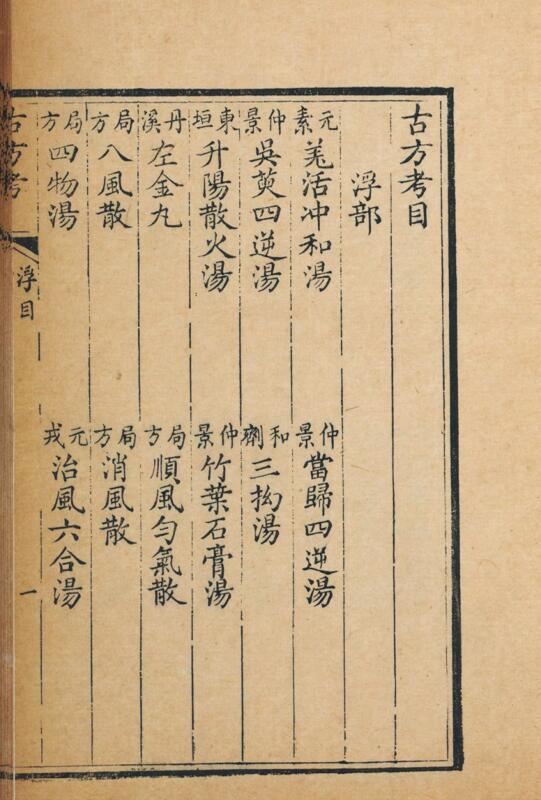 古方考目
浮部
元素 羗活冲和湯
仲景 當歸四逆湯
仲景 吳萸四逆湯
和劑 三抝湯
東垣 升陽散火湯
仲景 竹葉石膏湯
丹溪 左金丸
局方 順風勻氣散
局方 八風散
局方 消風散
局方 四物湯
元戎 治風六合湯
古方考
浮目
一